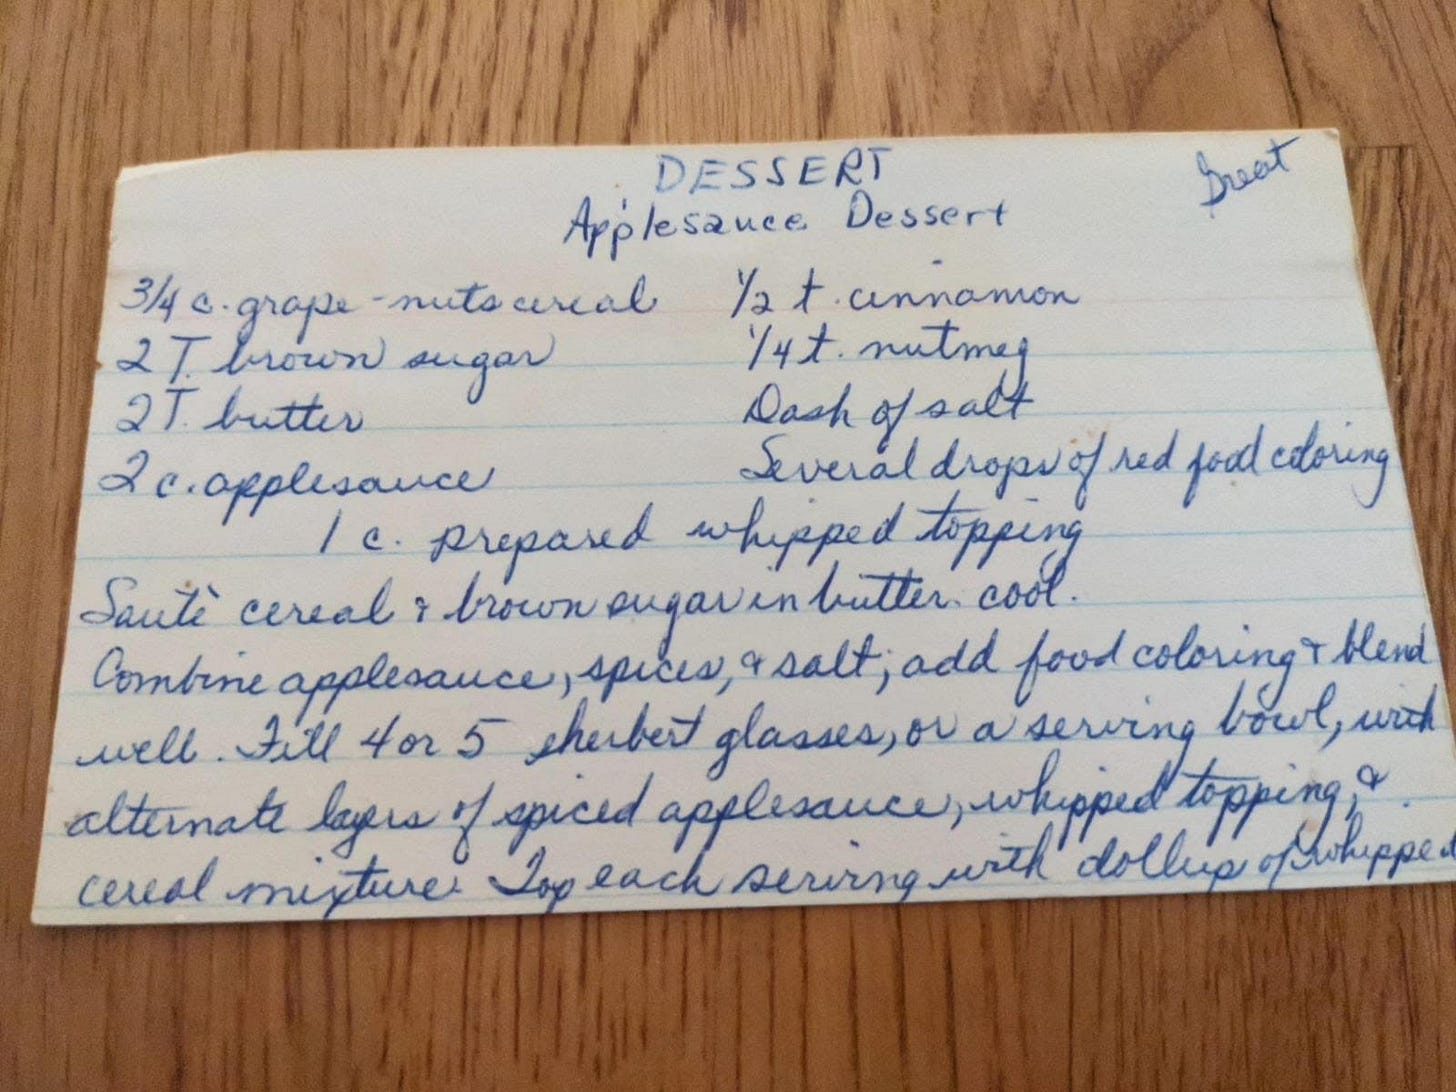 DESSERT
Great
Applesauce Dessert
3/4 c. grape-nuts cereal
1/2 t. cinnamon
2 T. brown sugar
1/4 t. nutmeg
2 T. butter
Dash of salt
2 c. applesauce
Several drops of red food coloring
1 c. prepared whipped topping
Sautè cereal & brown sugar in butter. cool.
Combine applesauce, spices, & salt; add food coloring & blend
well. Fill 4 or 5 sherbert glasses, or a serving bowl, with
alternate layers of spiced applesauce, whipped topping, &
cereal mixture. Top each serving with dollup of whipped